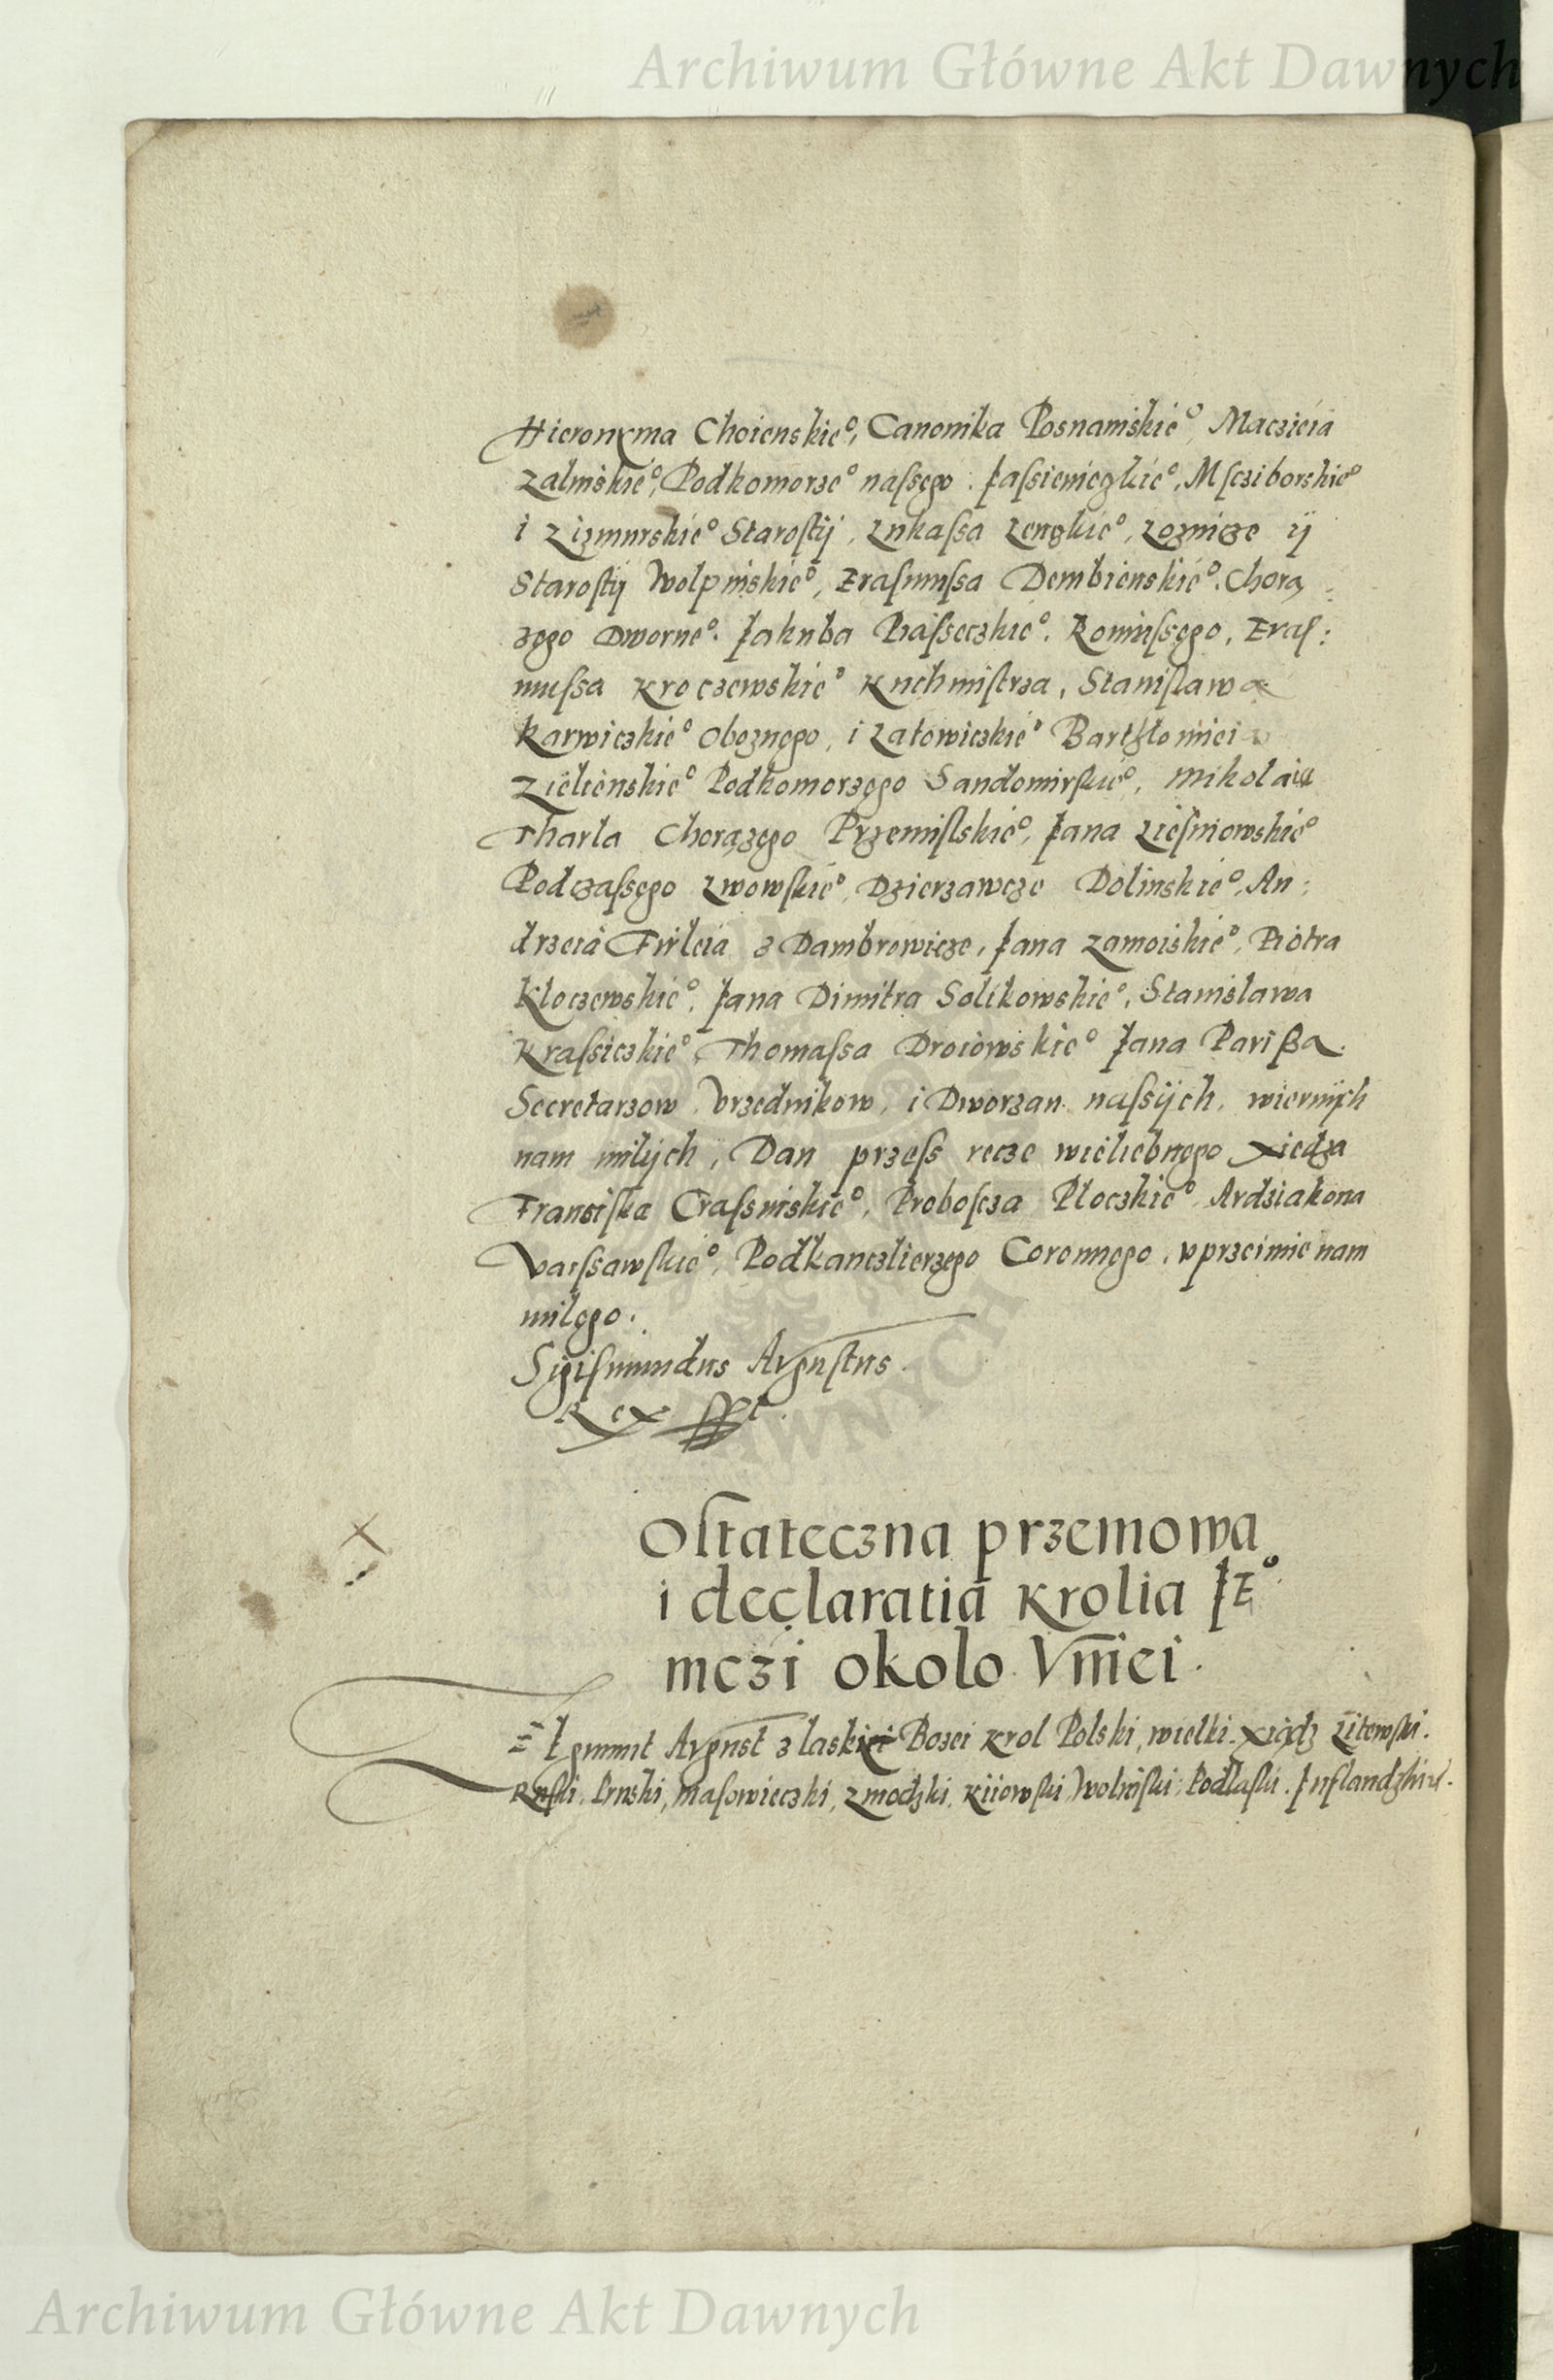 Archiwum Główne Akt Dawnych
Hieronyma Choienskie°, Canonika Posnanskie°, Maczieia
Zalinskie°, Podkomorze° nassego. Jassienieczkie°, Mscziborskie°
i Zizmurskie° Starostij, Lukassa Lenczkie°, Loznicze ij
Starostij Wolpinskie°, Erasmussa Dembienskie°. Chorą
zego Dworne°. Jakuba Piasseczkie°. Koniussego, Eras:
mussa Kroczewskie° Kuchmistrza, Stanislawa
Karwiczkie° Oboznego, i Latowiczkie° Barthlomieia
Zielienskie° Podkomorzego Sandomirskie°, Mikolaia
Tharla Chorązego Przemislskie°, Jana Liesniowskie°
Podczassego Lwowskie°, Dzierzawcze Dolinskie°, An:
drzeia Firleia z Dambrowicze, Jana Zamoiskie°, Piotra
Kloczewskie°, Jana Dimitra Solikowskie°, Stanislawa
Krassiczkie°, Thomassa Droiowskie° Jana Parißa.
Secretarzow, Vrzednikow, i Dworzan nassijch, wiernijch
nam milijch, Dan przess recze wieliebnego Xiedza
Franciska Crassinskie°, Proboscza Ploczkie°, Ardziakona
Varssawskie°, Podkanczlierzego Coronnego, vprzeimie nam
milego.
Sigismundus Augustus.
Rex sspt.
Ostateczna przemowa
i declaratia Krolia JE°
mczi okolo Vniei.
Zygmunt August z laski Bozei Krol Polski, wielki Xiądz Litewski.
Ruski, Pruski, Masowieczki, Zmodzki, Kiiowski, Wolinski, Podlaski, Inflandzki
Archiwum Główne Akt Dawnych